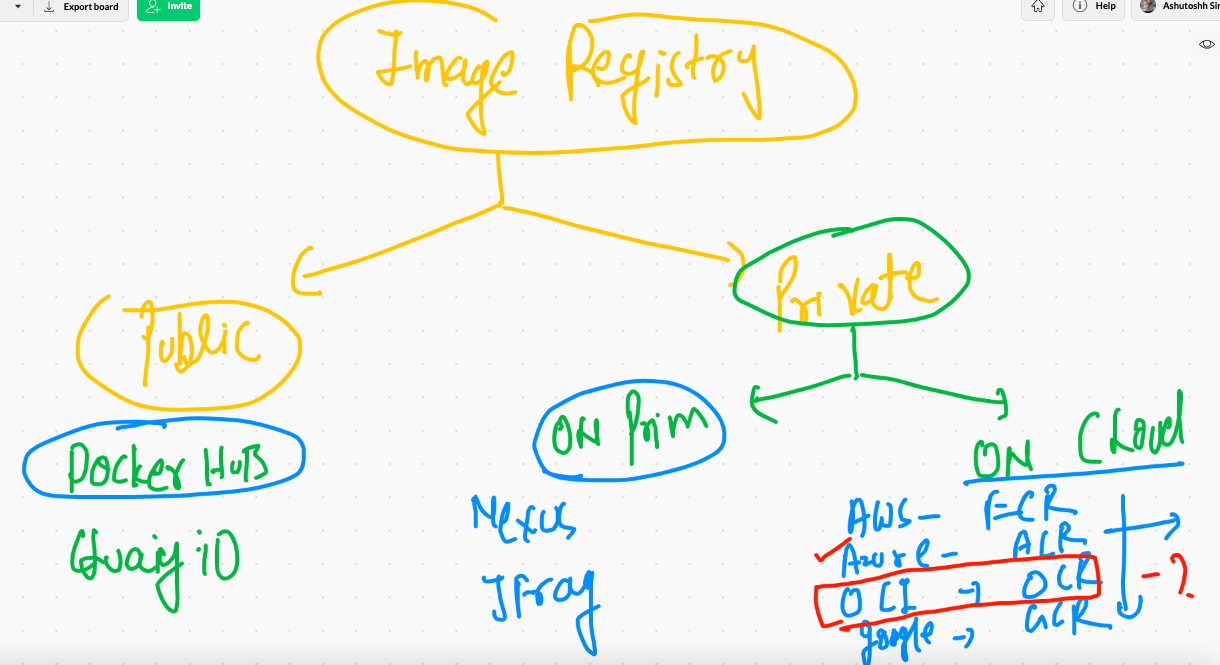 Export board
Invite
Help
Ashutoshh Sin
Image Registry
Public
Private
Docker HuB
Quay iO
ON Prim
Nexus
Jfrog
ON Cloud
AWS - ECR
Azure - ACR
OCI → OCR
google → GCR
- ?